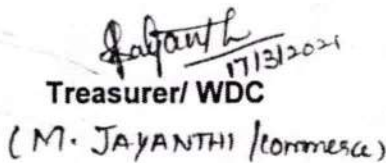 Jayanth
17/3/2021
Treasurer/ WDC
(M. JAYANTHI /Commerce)